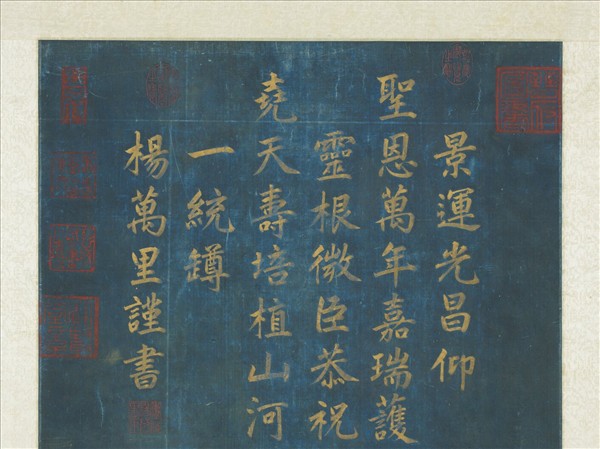 景運光昌仰
聖恩萬年嘉瑞護
靈根微臣恭祝
堯天壽培植山河
一統罇
楊萬里謹書